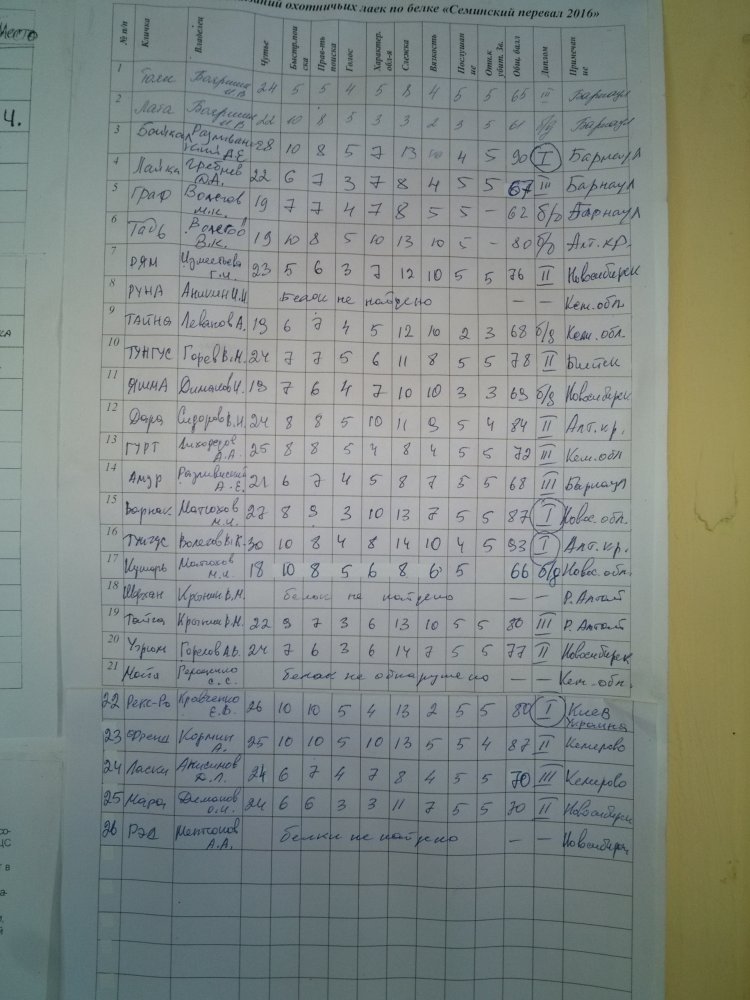 охотничьих лаек по белке «Семинский перевал 2016»
№ п/п Кличка Владелец Чутье Быстр.пои ска Прав-ть поиска Голос Характер. обл-я Слежка Вязкость Послушан ие Отн.к убит. Зв. Общ. балл Диплом Примечан ие
1 24 5 5 4 5 8 4 5 5 65 III Барнаул
2 Лата 22 10 8 5 3 3 2 3 5 61 б/д Барнаул
3 Байкал 28 10 8 5 7 13 10 4 5 90 I Барнаул
4 Лайка Гребнев 22 6 7 3 7 8 4 5 5 67 III Барнаул
5 Граф Волегов М.К. 19 7 7 4 7 8 5 5 – 62 б/д Барнаул
6 Волегов В.К. 19 10 8 5 10 13 10 5 – 80 б/д Алт.кр.
7 РЯМ Изместьева Г.И. 23 5 6 3 7 12 10 5 5 76 II Новосибирск
8 РУНА Аникин Белки не найдено – – Кем.обл.
9 ТАЙНА Леванов А. 19 6 7 4 5 12 10 2 3 68 б/д Кем.обл.
10 ТУНГУС Горев В.М. 24 7 7 5 6 11 8 5 5 78 II Бийск
11 ЯШМА 19 7 6 4 7 10 10 3 3 69 б/д Новосибирск
12 Дара Сидоров В.Н. 24 8 8 5 10 11 9 5 4 84 II Алт.кр.
13 ГУРТ Лиходедов А.А. 25 8 8 5 4 8 4 5 5 72 III Кем.обл
14 Амур А.Е. 21 6 7 4 5 8 7 5 5 68 III Барнаул
15 Варнак Матюхов М.И. 27 8 9 3 10 13 7 5 5 87 I Новос.обл.
16 Тунгус Волегов В.К. 30 10 8 4 8 14 10 4 5 93 I Алт.кр.
17 Кучарь Матюхов М.И. 18 10 8 5 6 8 6 5 66 б/д Новос.обл.
18 Шархан Крынин В.М. белок не найдено – – Р.Алтай
19 Тайга Крынин В.М. 22 9 7 3 6 13 10 5 5 80 III Р.Алтай
20 Угрюм Горелов А.В. 24 7 6 3 6 14 7 5 5 77 II Новосибирск
21 Найда Геращенко С.С. белок не обнаружено – – Кем.обл.
22 Рекс-Ро Кравченко Е.В. 26 10 10 5 4 13 2 5 5 80 I Киев Украина
23 Френд А. 25 10 10 5 10 13 5 5 4 87 II Кемерово
24 Ласки Анисимов Д.Л. 24 6 7 4 7 8 4 5 5 70 III Кемерово
25 Мара 24 6 6 3 3 11 7 5 5 70 II Новосибирск
26 РЭД А.А. белки не найдено – – Новосибирск